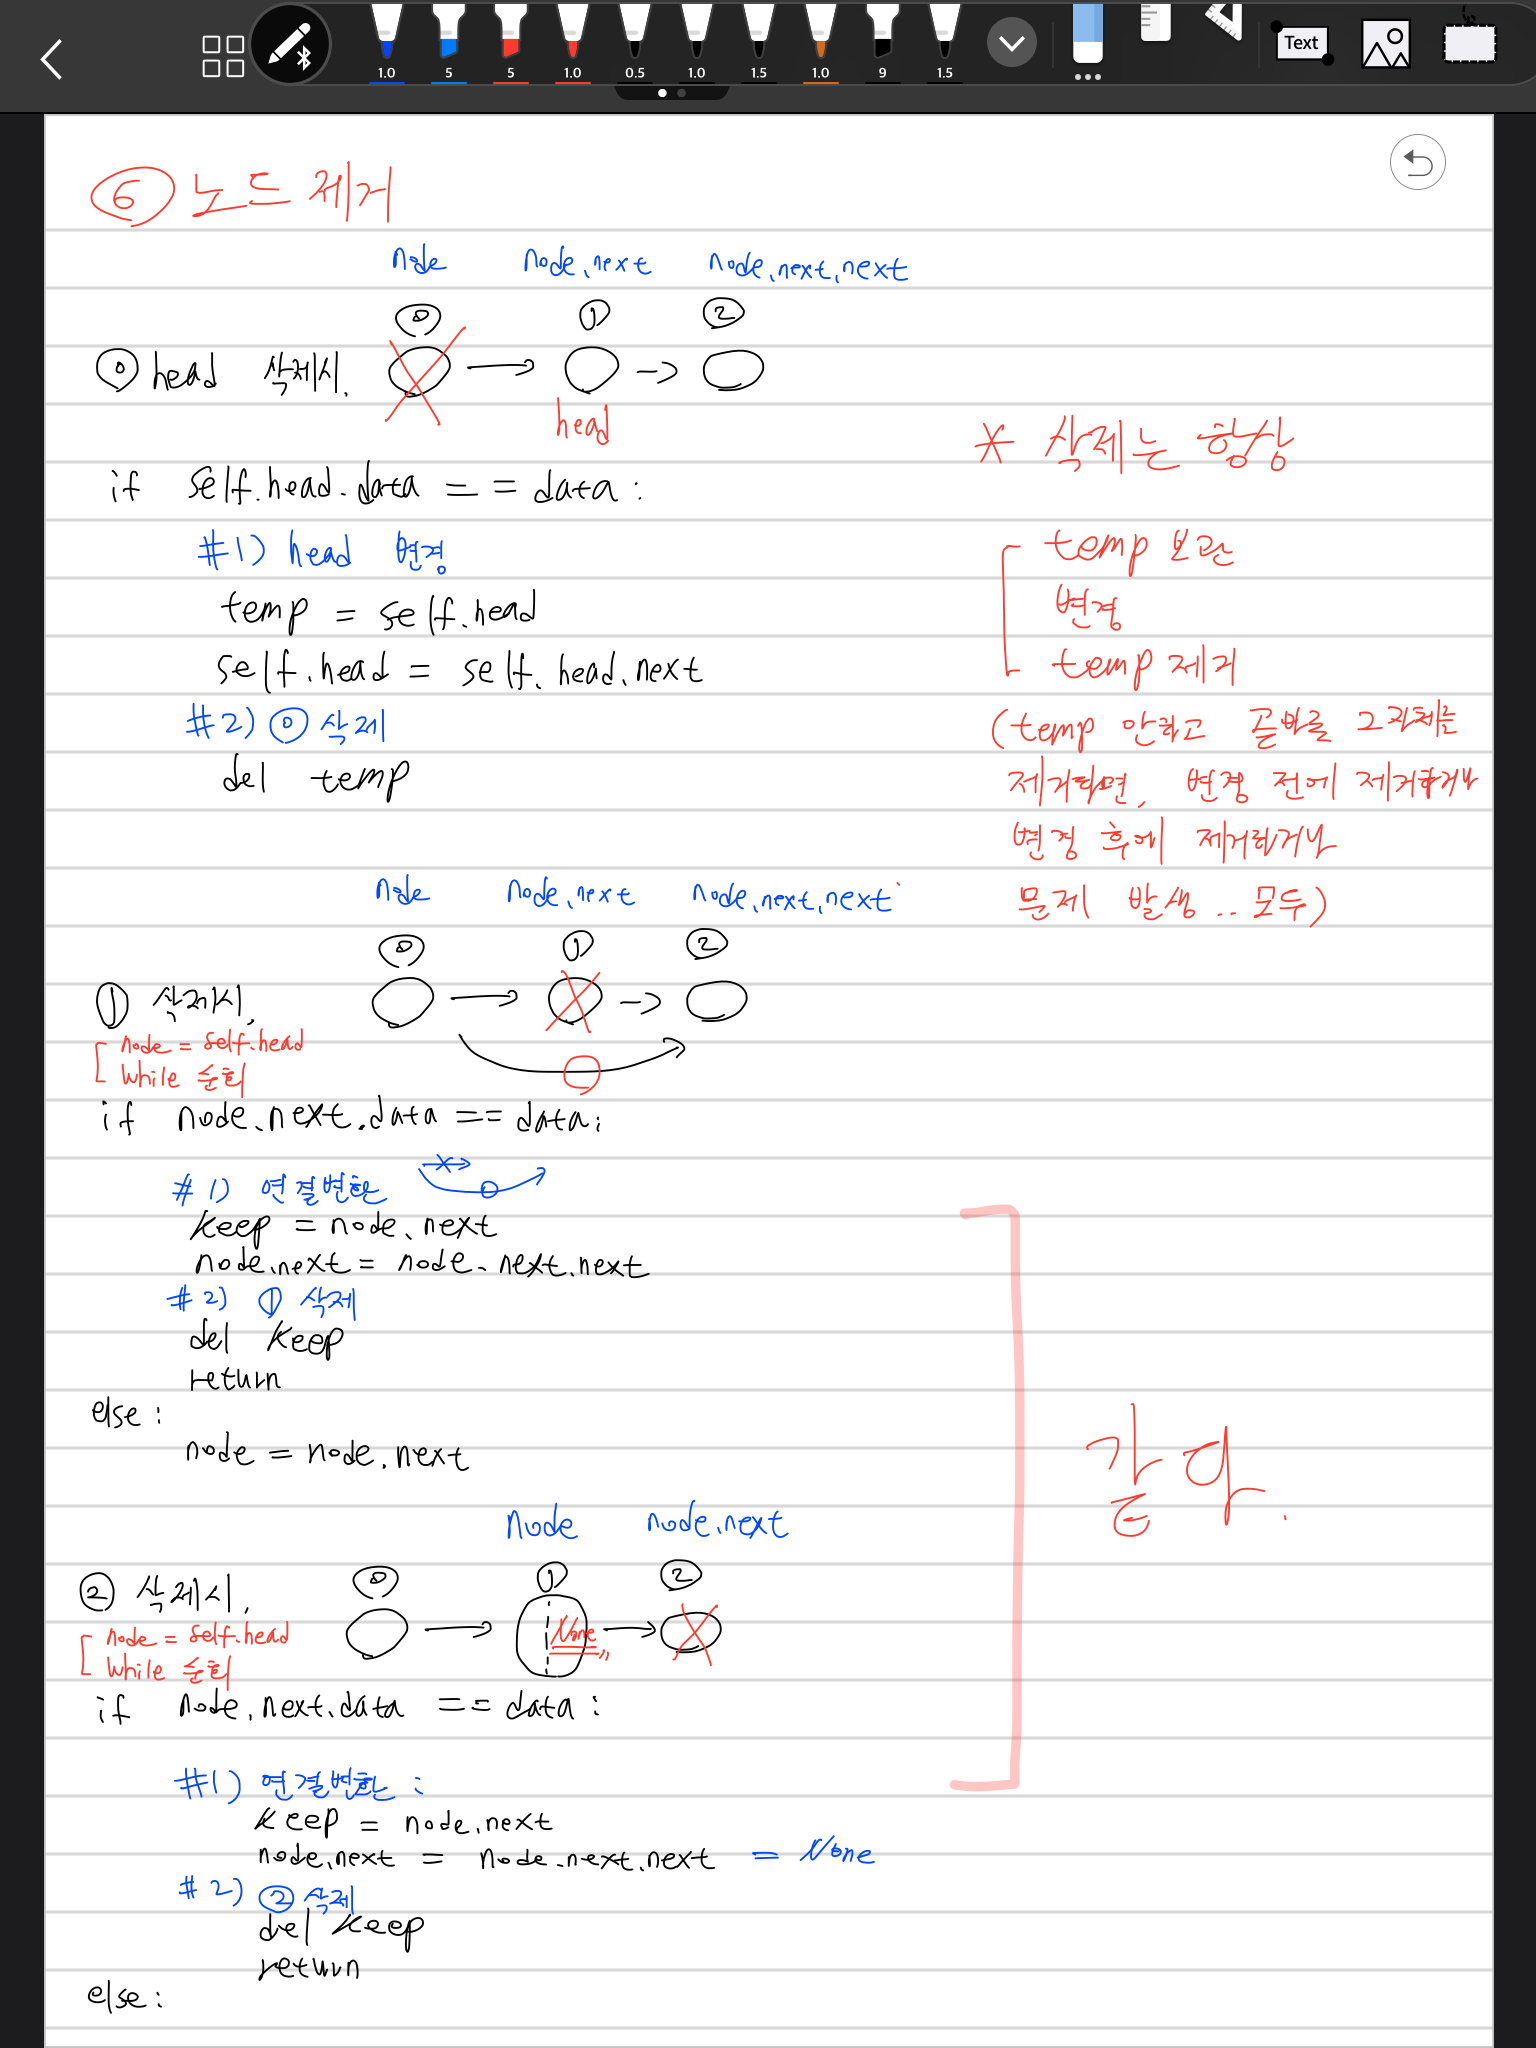 1.0 5 5 1.0 0.5 1.0 1.5 1.0 9 1.5 Text
⑥ 노드 제거
node node.next node.next.next
⓪ ① ②
⓪ head 삭제시.
head
if self.head.data == data :
#1) head 변경
temp = self.head
self.head = self.head.next
#2) ⓪ 삭제
del temp
* 삭제는 항상
temp 보관
변경
temp 제거
(temp 안하고 곧바로 그 자체를
제거하면, 변경 전에 제거하거나
변경 후에 제거하거나
문제 발생.. 모두)
node node.next node.next.next
⓪ ① ②
① 삭제시,
node = self.head
while 순회
if node.next.data == data:
#1) 연결변환
keep = node.next
node.next = node.next.next
#2) ① 삭제
del keep
return
else :
node = node.next
같다.
node node.next
⓪ ① ②
② 삭제시,
None
node = self.head
while 순회
if node.next.data == data :
#1) 연결변환 :
keep = node.next
node.next = node.next.next = None
#2) ② 삭제
del keep
return
else :